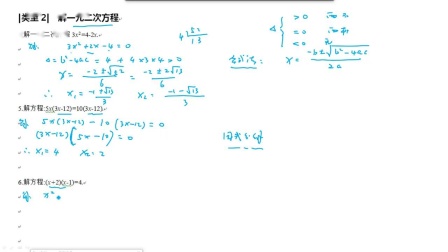 |类型 2| 解一元二次方程
解一元二次方程 3x²=4-2x
解: 3x²+2x-4=0
Δ=b²-4ac = 4 + 4×3×4 >0
x = (-2±√52)/6 = (-2±2√13)/6
∴ x₁ = (-1+√13)/3 x₂ = (-1-√13)/3
4 52
13
Δ >0
=0
<0
x = (-b±√(b²-4ac))/2a
5.解方程:5x(3x-12)=10(3x-12).
解 5x(3x-12)-10(3x-12)=0
(3x-12)(5x-10)=0
∴ x₁=4 x₂=2
6.解方程:(x+2)(x-1)=4.
解 x²